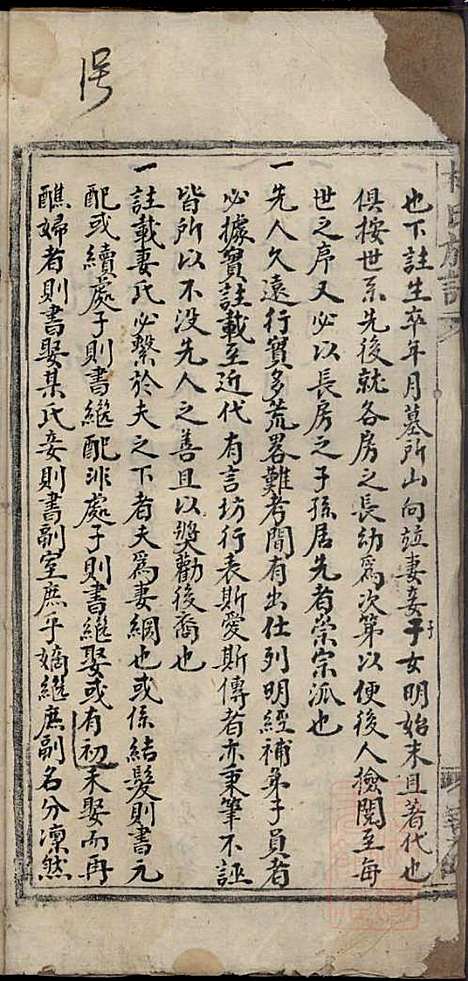 也下註生卒年月墓所山向竝妻妾子女明始末且著代也
俱按世系先後就各房之長幼爲次第以便後人撿閱至每
世之序又必以長房之子孫居先者崇宗派也
一先人久遠行實多荒畧難考間有出仕列明經補弟子員者
必據實註載至近代有言坊行表斯愛斯傳者亦秉筆不誣
皆所以不没先人之善且以奬勸後裔也
一註載妻氏必繫於夫之下者夫爲妻綱也或係結髮則書元
配或續處子則書繼配非處子則書繼娶或有初未娶而再
醮婦者則書娶某氏妾則書副室庶乎嫡繼庶副名分凛然